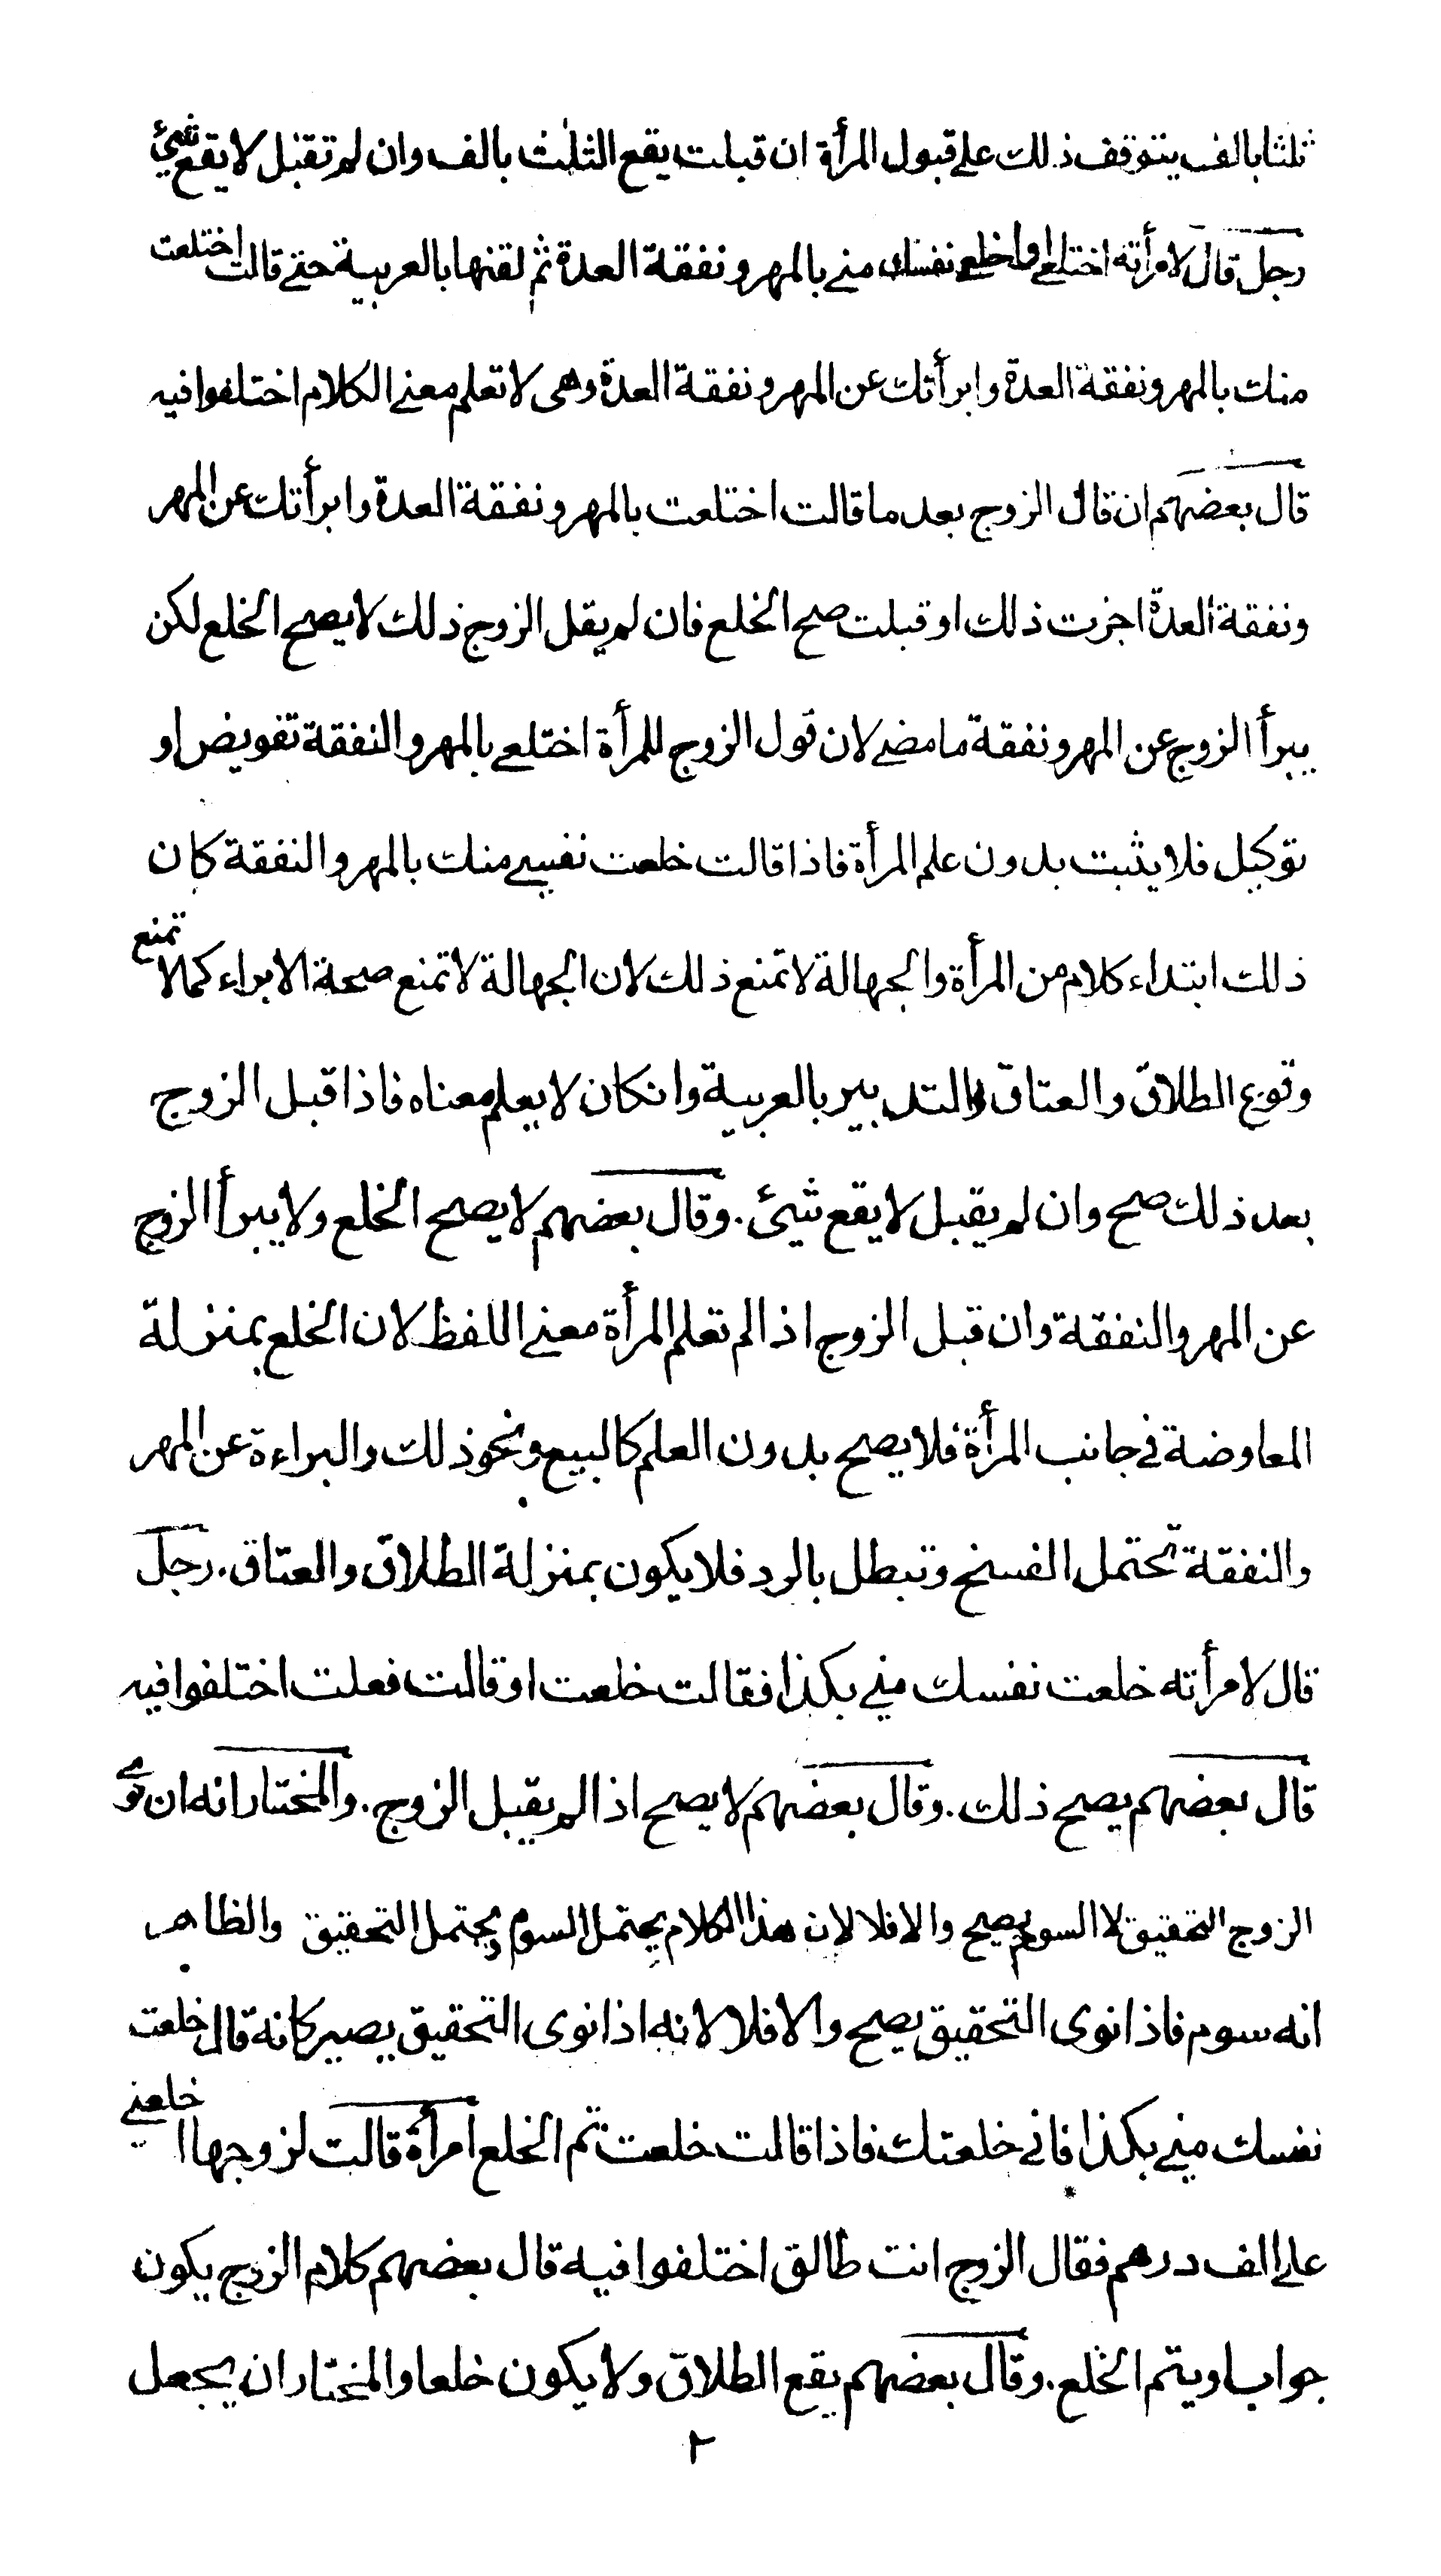 ثلثا بالف يتوقف ذلك على قبول المرأة ان قبلت يقع الثلث بالف وان لم تقبل لا يقع شيئ
رجل قال لامرأته اختلعي او اخلعي نفسك مني بالمهر ونفقة العدة ثم لقنها بالعربية حتى قالت اختلعت
منك بالمهر ونفقة العدة وابرأتك عن المهر ونفقة العدة وهى لا تعلم معنى الكلام اختلفوا فيه
قال بعضهم ان قال الزوج بعد ما قالت اختلعت بالمهر ونفقة العدة وابرأتك عن المهر
ونفقة العدة اجزت ذلك او قبلت صح الخلع فان لم يقل الزوج ذلك لا يصح الخلع لكن
يبرأ الزوج عن المهر ونفقة ما مضى لان قول الزوج للمرأة اختلعي بالمهر والنفقة تفويض او
توكيل فلا يثبت بدون علم المرأة فاذا قالت خلعت نفسي منك بالمهر والنفقة كان
ذلك ابتداء كلام من المرأة والجهالة لا تمنع ذلك لان الجهالة لا تمنع صحة الابراء كما لا تمنع
وقوع الطلاق والعتاق والتدبير بالعربية وانكان لا يعلم معناه فاذا قبل الزوج
بعد ذلك صح وان لم يقبل لا يقع شيئ. وقال بعضهم لا يصح الخلع ولا يبرأ الزوج
عن المهر والنفقة وان قبل الزوج اذا لم تعلم المرأة معنى اللفظ لان الخلع بمنزلة
المعاوضة في جانب المرأة فلا يصح بدون العلم كالبيع ونحو ذلك والبراءة عن المهر
والنفقة تحتمل الفسخ وتبطل بالرد فلا يكون بمنزلة الطلاق والعتاق. رجل
قال لامرأته خلعت نفسك مني بكذا فقالت خلعت او قالت فعلت اختلفوا فيه
قال بعضهم يصح ذلك. وقال بعضهم لا يصح اذا لم يقبل الزوج. والمختار انه ان نوى
الزوج التحقيق لا السوم يصح والا فلا لان هذا الكلام يحتمل السوم ويحتمل التحقيق والظاهر
انه سوم فاذا نوى التحقيق يصح والا فلا لانه اذا نوى التحقيق يصير كانه قال خلعت
نفسك مني بكذا فاني خلعتك فاذا قالت خلعت تم الخلع امرأة قالت لزوجها اخلعني
على الف درهم فقال الزوج انت طالق اختلفوا فيه قال بعضهم كلام الزوج يكون
جوابا ويتم الخلع. وقال بعضهم يقع الطلاق ولا يكون خلعا والمختار ان يجعل
٢